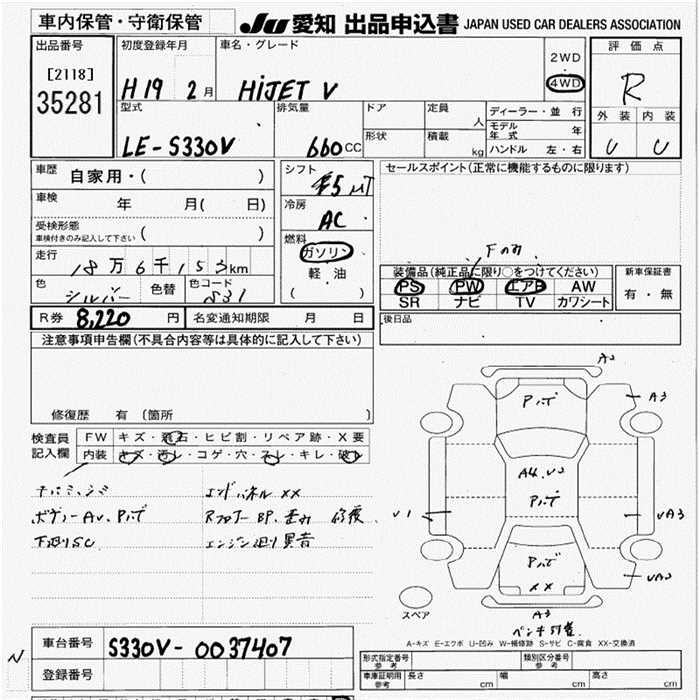 車内保管・守衛保管
JU 愛知 出品申込書 JAPAN USED CAR DEALERS ASSOCIATION
出品番号
[2118]
35281
初度登録年月
H19 2月
車名・グレード
HiJET V
2WD
4WD
評価点
R
外装 内装
型式
LE-S330V
排気量
660CC
ドア
定員
人
形状
積載
kg
ディーラー・並行
モデル年式 年
ハンドル 左・右
車歴
自家用・( )
車検
年 月( 日)
受検形態
車検付きのみ記入して下さい ( )
走行
18万6千153km
色
シルバー
色替
色コード
S31
シフト
5 MT
冷房
AC
燃料
ガソリン
軽油
( )
セールスポイント(正常に機能するものに限ります)
Fのみ
装備品(純正品に限り○をつけてください)
PS PW エアB AW
SR ナビ TV カワシート
新車保証書
有・無
R券 8,220 円
名変通知期限 月 日
後日品
注意事項申告欄(不具合内容等は具体的に記入して下さい)
修復歴 有(箇所 )
検査員
記入欄
FW キズ・飛石・ヒビ割・リペア跡・X要
内装 キズ・汚レ・コゲ・穴・スレ・キレ・破レ
ボデーAU.Pハゲ
下廻りSC
エンドパネルXX
修復
エンジン廻り異音
A3
A3
Pハゲ
A4.U3
Pハゲ
U1
UA3
UA3
Pハゲ
XX
スペア
A3
A-キズ E-エクボ U-凹み W-補修跡 S-サビ C-腐食 XX-交換済
車台番号
S330V-0037407
登録番号
N
形式指定番号
参考
類別区分番号
参考
車庫証明用
参考
長さ cm
幅 cm
高さ cm